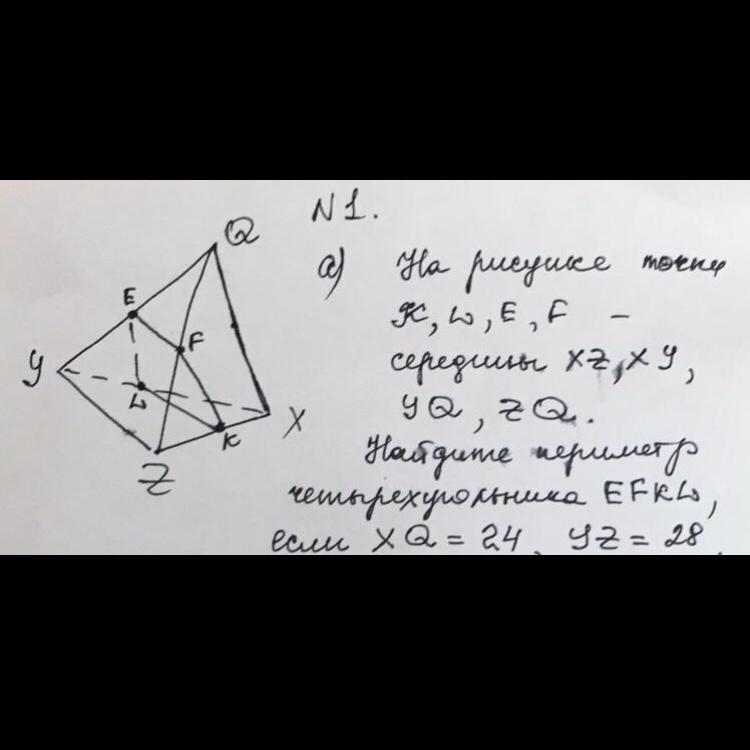 N1.
Q
а) На рисунке точки
E
K, W, E, F –
F
середины XZ, XY,
У
W
YQ, ZQ.
X
K
Z
Найдите периметр
четырехугольника EFKW,
если XQ = 24, YZ = 28.